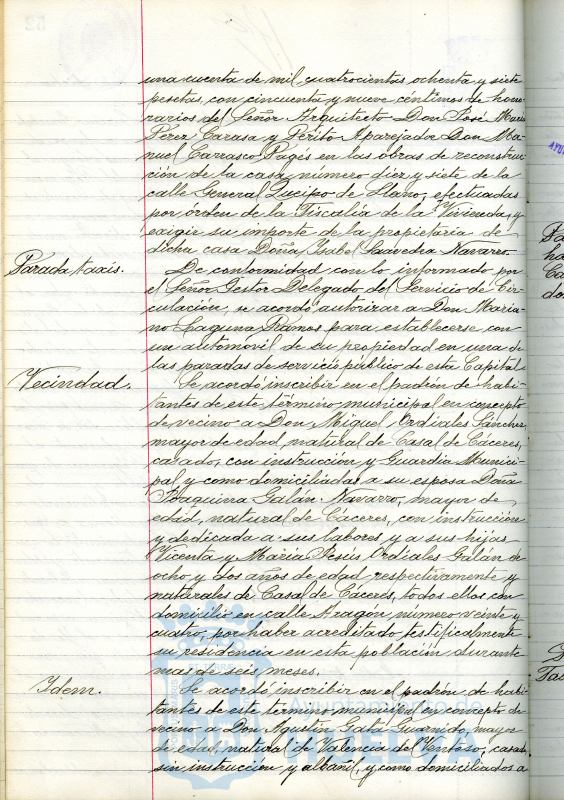 una cuenta de mil cuatrocientas ochenta y siete
pesetas, con cincuenta y nueve céntimos de hono-
rarios del Señor Arquitecto Don José María
Pérez Carasa y Perito Aparejador Don Ma-
nuel Carrasco Pagés en las obras de reconstruc-
ción de la casa número diez y siete de la
calle General Queipo de Llano, efectuadas
por órden de la Fiscalia de la Vivienda, y
exigir su importe de la propietaria de
dicha casa Doña Isabel Saavedra Navarro.
Parada taxis.
De conformidad con lo informado por
el Señor Gestor Delegado del Servicio de Cir-
culación, se acordó autorizar a Don Maria-
no Laguna Ramos para establecerse con
un automóvil de su propiedad en una de
las paradas de servicio público de esta Capital.
Vecindad.
Se acordó inscribir en el padrón de habi-
tantes de este término municipal en concepto
de vecino a Don Miguel Ordiales Sánchez
mayor de edad, natural de Casal de Cáceres,
casado, con instrucción y Guardia Munici-
pal y como domiciliadas a su esposa Doña
Joaquina Galán Navarro, mayor de
edad, natural de Cáceres, con instrucción
y dedicada a sus labores y a sus hijas
Vicenta y María Jesús Ordiales Galán de
ocho y dos años de edad respectivamente y
naturales de Casal de Cáceres, todos ellos con
domicilio en calle Aragón número veinte y
cuatro, por haber acreditado testificalmente
su residencia en esta población durante
mas de seis meses.
Idem.
Se acordó inscribir en el padrón de habi-
tantes de este término municipal en concepto de
vecino a Don Agustín Gata Guarnido, mayor
de edad, natural de Valencia del Ventoso, casado
sin instrucción y albañil, y como domiciliados a
Ayuntamiento de
HUELVA